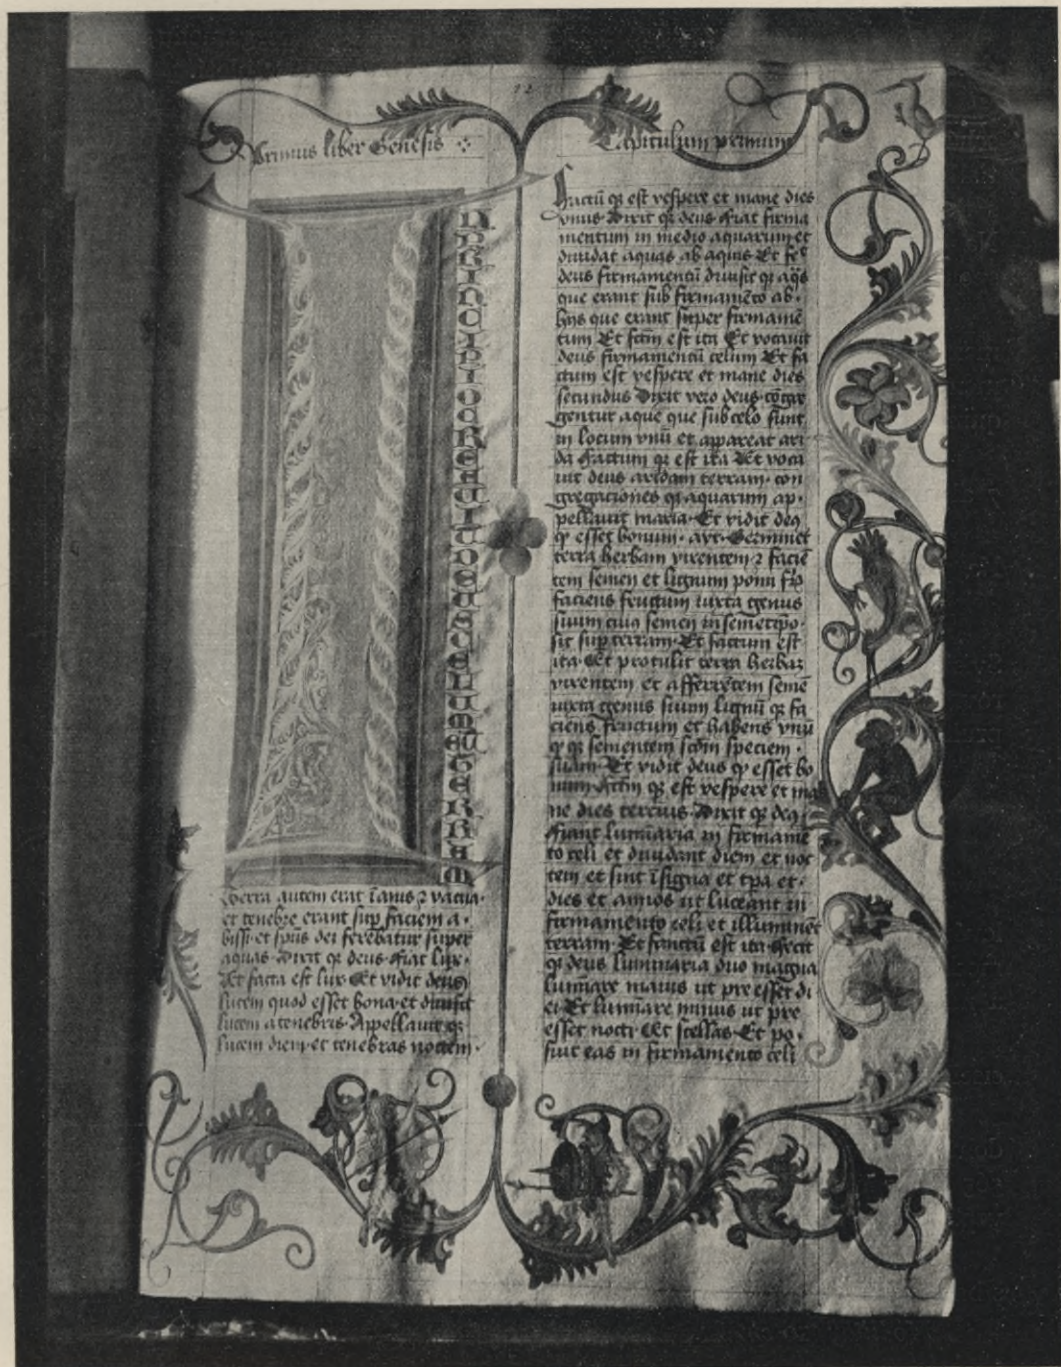 Primus liber Genesis
Capitulum primum
N PRINCIPIO CREAVIT DEUS CELUM ET TERRAM
Terra autem erat īanis ⁊ vacua·
et tenebre erant sup̱ faciem a·
bissi· et sp̄us dei ferebatur super
aquas· Dixit qꝫ deus· fiat lux·
Et facta est lux· Et vidit deus
lucem quod esset bona· et diuisit
lucem a tenebris· Appellauit qꝫ
lucem diem· et tenebras noctem·
factū qꝫ est vespere et mane dies
vnus· Dixit qꝫ deus· fiat firma
mentum in medio aquarum· et
diuidat aquas ab aquis· Et
deus firmamentū diuisit qꝫ aq̄s
que erant sub firmamēto ab·
hijs que erant super firmamē
tum Et fc̄m est ita Et vocauit
deus firmamentū celum Et fa
ctum est vespere et mane dies
secundus Dixit vero deus· cōgre
gentur aque que sub celo sunt
in locum vnū et appareat ari
da factum qꝫ est ita Et voca
uit deus aridam terram· con
gregaciones qꝫ aquarum ap·
pellauit maria· Et vidit deꝰ
ꝙ esset bonum· ayt· Germinet
terra herbam virentem ⁊ faciē
tem semen et lignum pomi
faciens fructum iuxta genus
suum cuiꝰ semen in semetip̄o·
sit sup̱ terram· Et factum est
ita· Et protulit terra herbaꝫ
virentem et afferētem semē
iuxta genus suum lignū qꝫ fa
ciens fructum et habens vnū
qꝫ qꝫ sementem scd̄m speciem·
suam· Et vidit deus ꝙ esset bo
num qꝫ est vespere et ma
ne dies tercius· Dixit qꝫ deꝰ·
fiant lumīaria in firmamē
to celi et diuidant diem et noc
tem et sint ī signa et tp̄a et·
dies et annos ut luceant in
firmamento celi et illuminēt
terram· Et factū est ita· fecit
qꝫ deus luminaria duo magna
lumīare maius ut pre esset di
ei· Et lumīare minus ut pre
esset nocti· Et stellas· Et po·
suit eas in firmamento celi